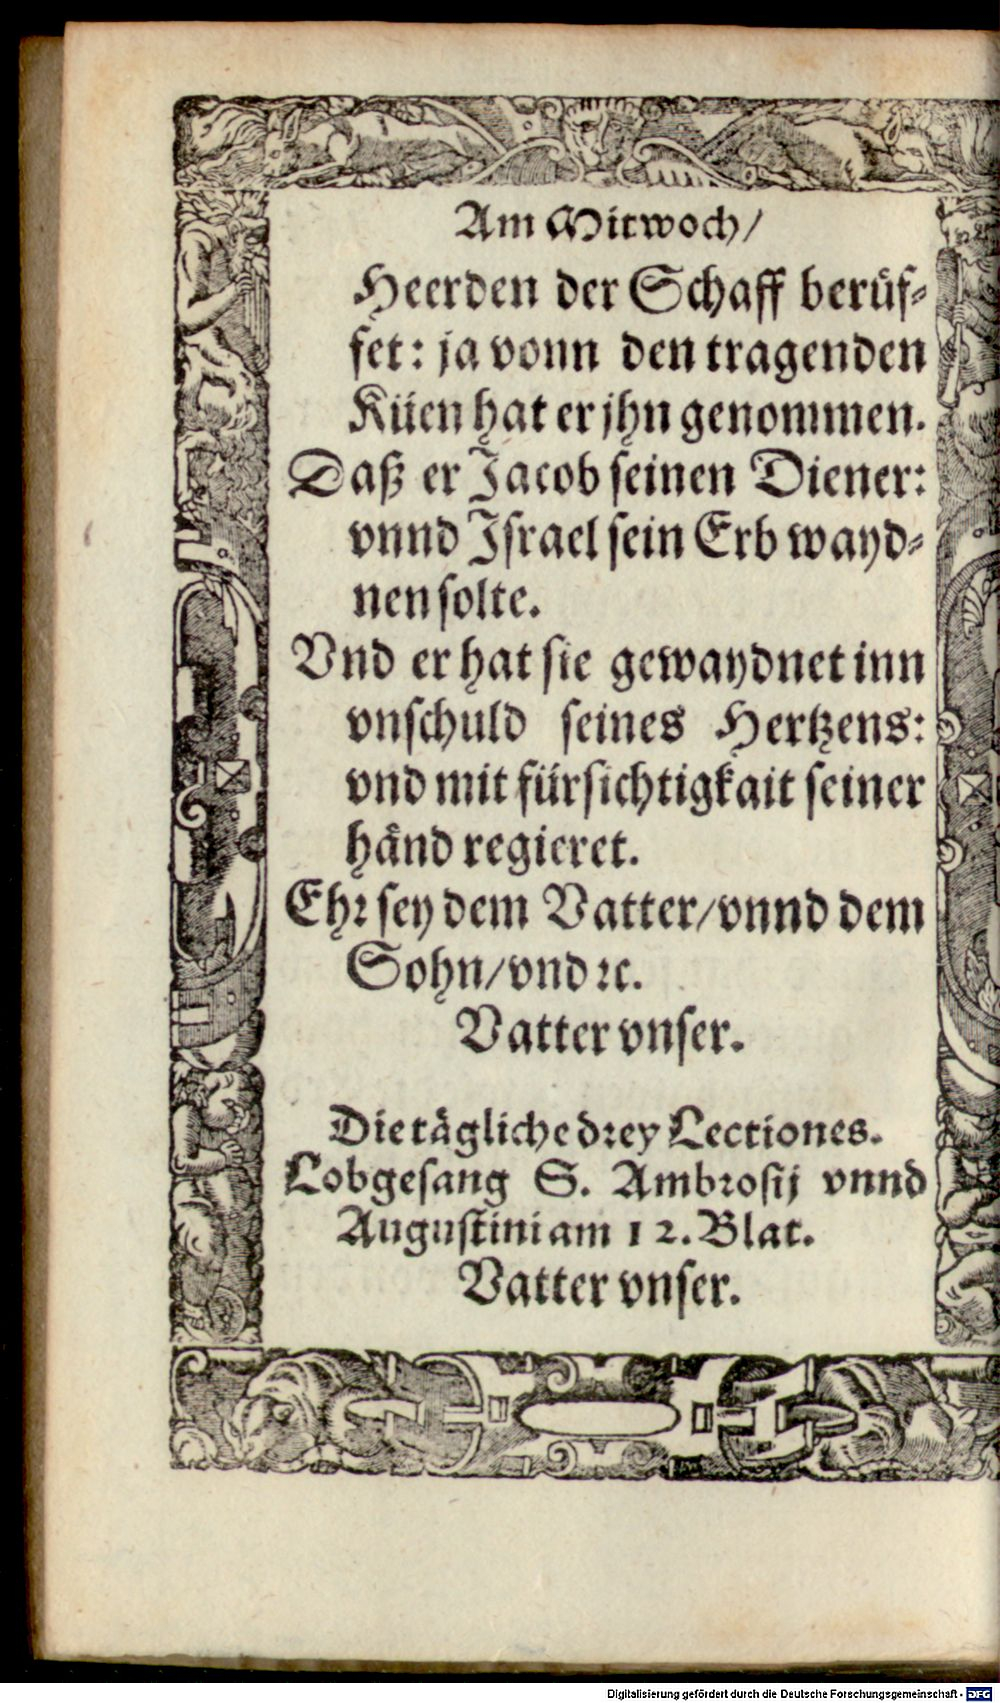 Am Mitwoch/
Heerden der Schaff berüf⸗
fet: ja vonn den tragenden
Küen hat er jhn genommen.
Daß er Jacob seinen Diener:
vnnd Israel sein Erb wayd⸗
nen solte.
Vnd er hat sie gewaydnet inn
vnschuld seines Hertzens:
vnd mit fürsichtigkait seiner
händ regieret.
Ehr sey dem Vatter/vnnd dem
Sohn/vnd ꝛc.
Vatter vnser.
Die tägliche drey Lectiones.
Lobgesang S. Ambrosij vnnd
Augustini am 12. Blat.
Vatter vnser.
Digitalisierung gefördert durch die Deutsche Forschungsgemeinschaft - DFG